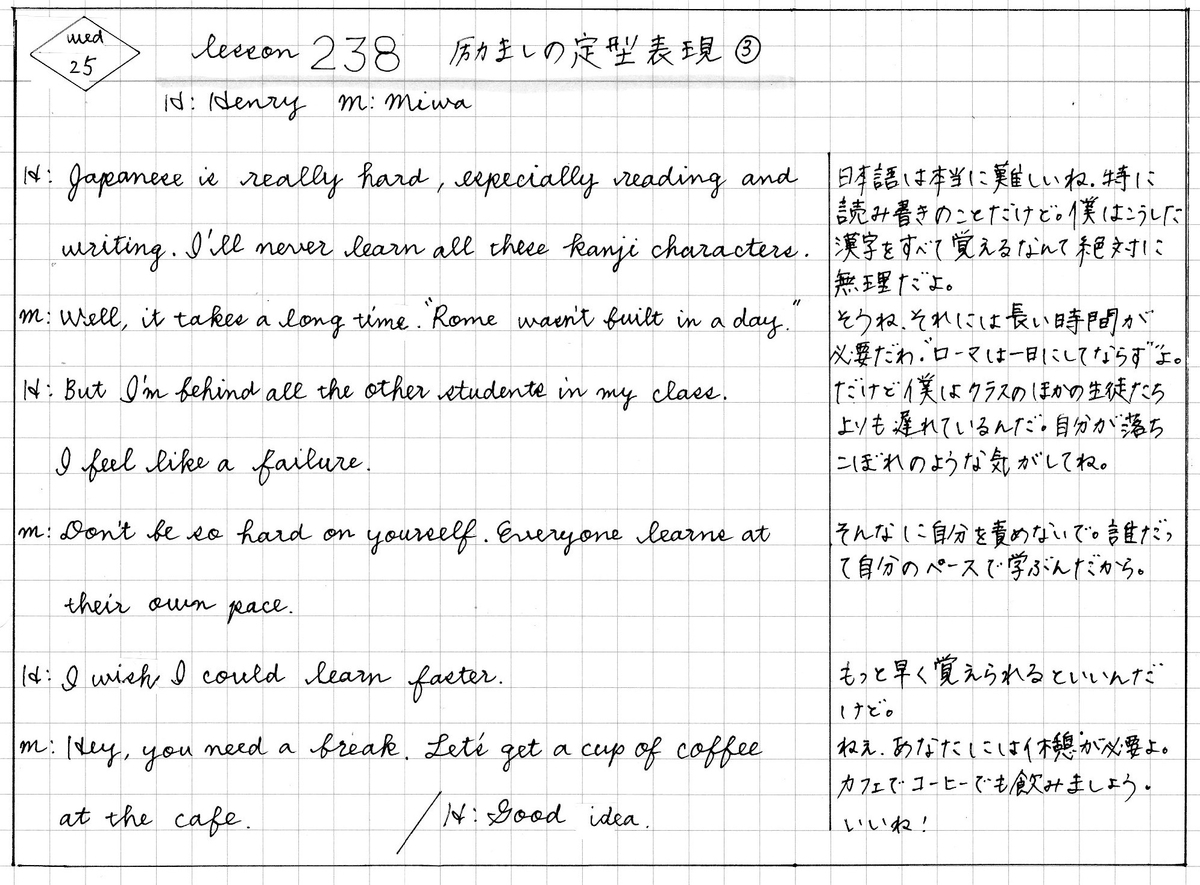 wed
25
lesson 238 励ましの定型表現 ③
H: Henry m: miwa
H: Japanese is really hard, especially reading and
writing. I'll never learn all these kanji characters.
m: Well, it takes a long time. "Rome wasn't built in a day."
H: But I'm behind all the other students in my class.
I feel like a failure.
m: Don't be so hard on yourself. Everyone learns at
their own pace.
H: I wish I could learn faster.
m: Hey, you need a break. Let's get a cup of coffee
at the cafe. / H: Good idea.
日本語は本当に難しいね。特に
読み書きのことだけど。僕はこうした
漢字をすべて覚えるなんて絶対に
無理だよ。
そうね、それには長い時間が
必要だわ。"ローマは一日にしてならず"よ。
だけど僕はクラスのほかの生徒たち
よりも遅れているんだ。自分が落ち
こぼれのような気がしてね。
そんなに自分を責めないで。誰だっ
て自分のペースで学ぶんだから。
もっと早く覚えられるといいんだ
けど。
ねえ、あなたには休憩が必要よ。
カフェでコーヒーでも飲みましょう。
いいね!